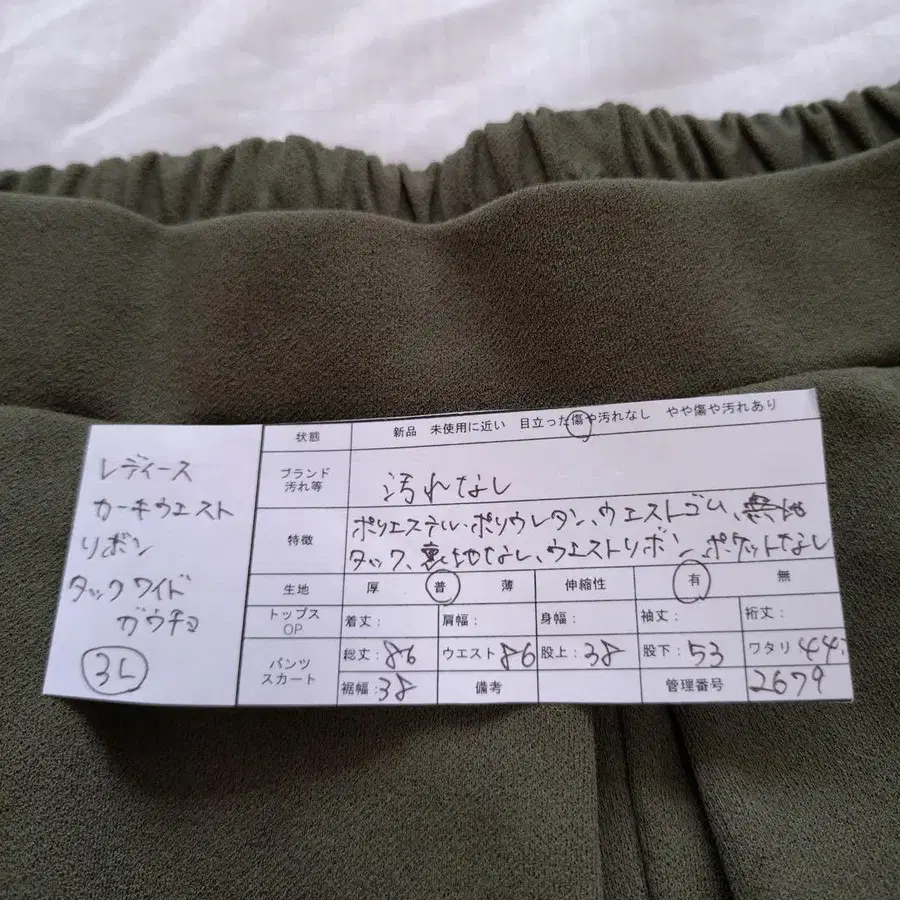 レディース
カーキウエスト
リボン
タックワイド
ガウチョ
3L
状態 新品 未使用に近い 目立った傷や汚れなし やや傷や汚れあり
ブランド
汚れ等
汚れなし
特徴
ポリエステル・ポリウレタン、ウエストゴム、無地
タック、裏地なし、ウエストリボン、ポケットなし
生地 厚 普 薄 伸縮性 有 無
トップス
OP
着丈: 肩幅: 身幅: 袖丈: 裄丈:
パンツ
スカート
総丈:86 ウエスト86 股上:38 股下:53 ワタリ44.
裾幅:38 備考 管理番号 2679